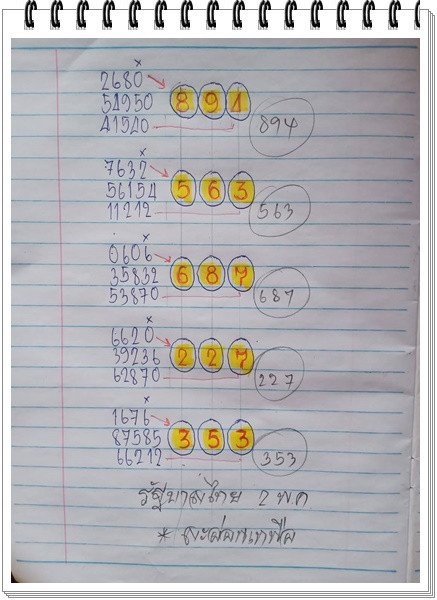 ×
2680
54950 8 9 4
41540 894
×
7632
56154 5 6 3
11212 563
×
0606
35832 6 8 7
53870 687
×
6620
39236 2 2 7
62870 227
×
1676
87585 3 5 3
66212 353
รัฐบาลไทย 2 พ.ค.
*